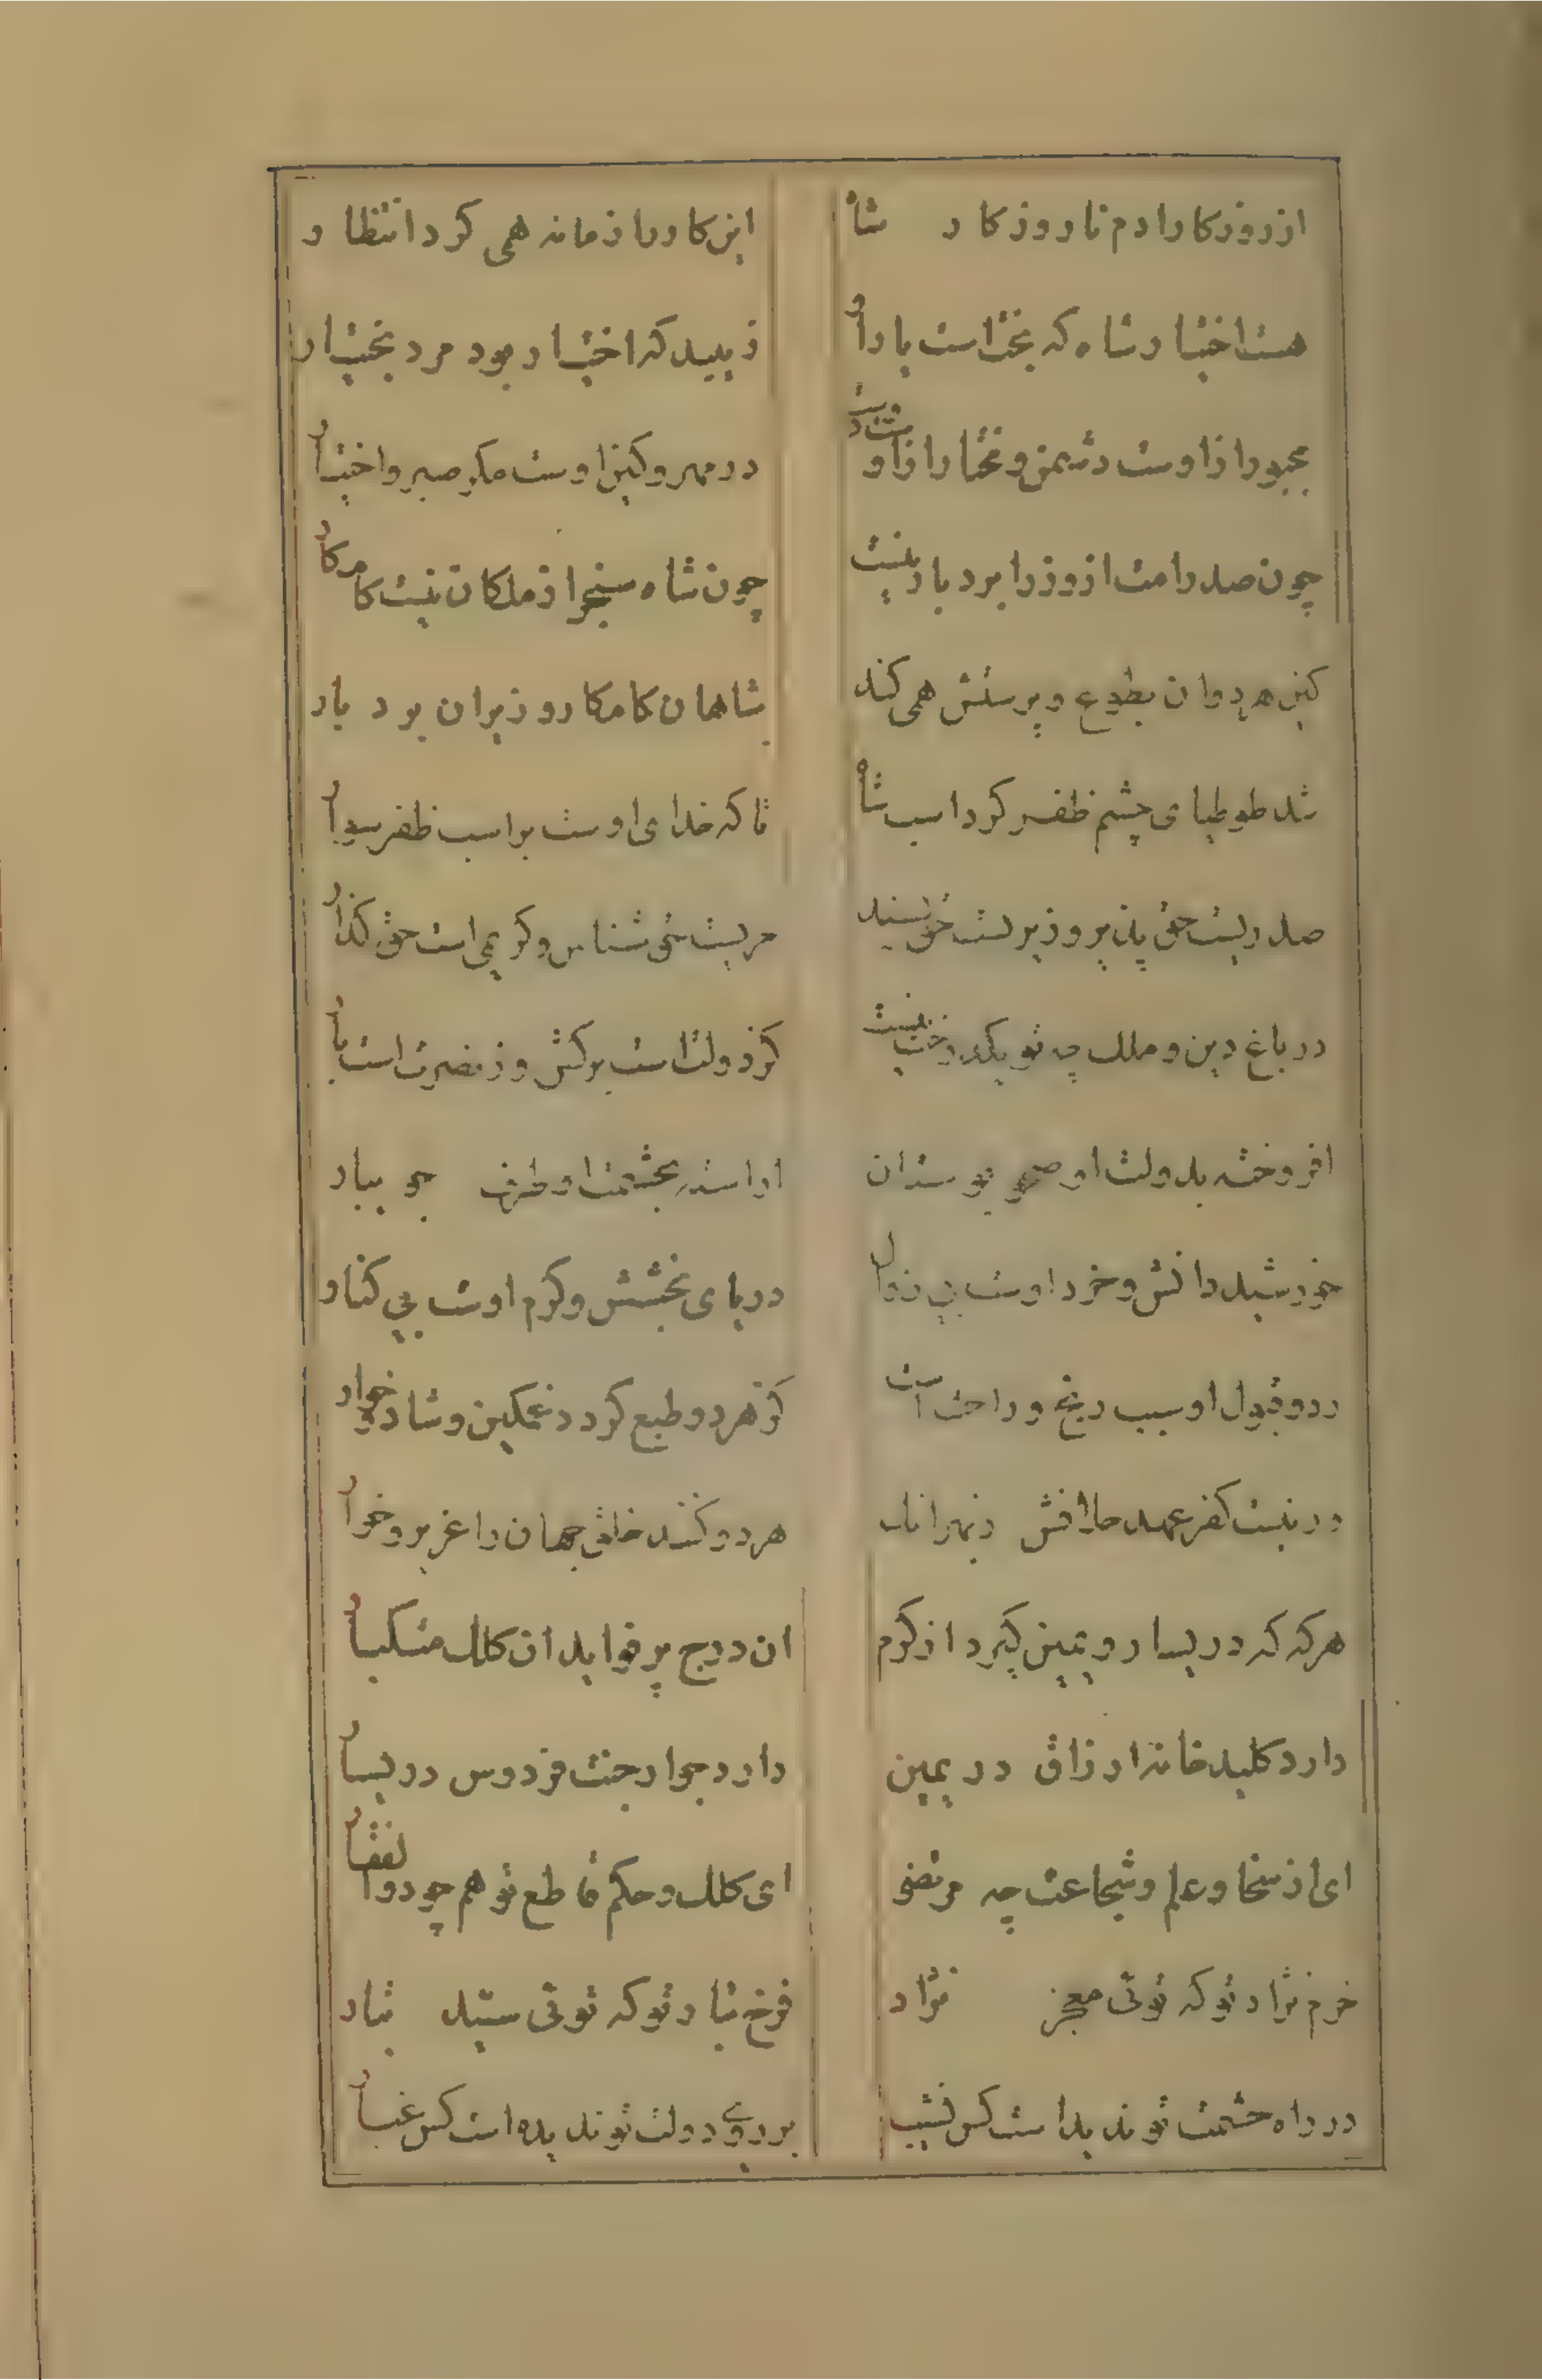 از روزکار ادم تا روزکار شاه
این کار را زمانه همی کرد انتظار
هست اختیار شاه که بختست یار او
زیبد که اختیار بود مرد بختیار
مجبور ازاوست دشمن و مختار ازاو
در مهر و کین اوست مکر صبر و اختیار
چون صدر امت از وزرا برد بار نیست
چون شاه سنجر از ملکان نیست کامکار
کین هر دو ان بطوع و پرستش همی کنند
شاهان کامکار وزیران برد بار
شد طوطیای چشم ظفر کرد اسب شاه
تا که خدای اوست بر اسب ظفر سوار
صدریست حق پذیر وزیریست حق پسند
حریست حق شناس و کریمی است حق کذار
در باغ دین و ملک چه تو یک درخت نیست
کز دولت است برکش وز نصرت است بار
افروخته بدولت او صحن بوستان
اراسته بحشمت او طرف جویبار
خورشید دانش و خرد اوست بی زوال
دریای بخشش و کرم اوست بی کنار
رد و قبول او سبب رنج و راحت است
کز هر دو طبع کردد غمکین و شاد خوار
در نیست کفر عهد خلافش
هر دو کنند خلق جهان را عزیز و خوار
هرکه که در یسار و یمین کیرد از کرم
ان درج پر فواید ان کلک مشکبار
دارد کلید خانه ارزاق در یمین
دارد جوار جنت فردوس در یسار
ای از سخا و علم و شجاعت چه مرتضی
ای کلک و حکم قاطع تو هم چو ذوالفقار
خرم نژاد تو که توئی معجز نژاد
فرخ تبار تو که توئی سید تبار
در راه حشمت تو ندیداست کس نشیب
بر روی دولت تو ندیده است کس غبار